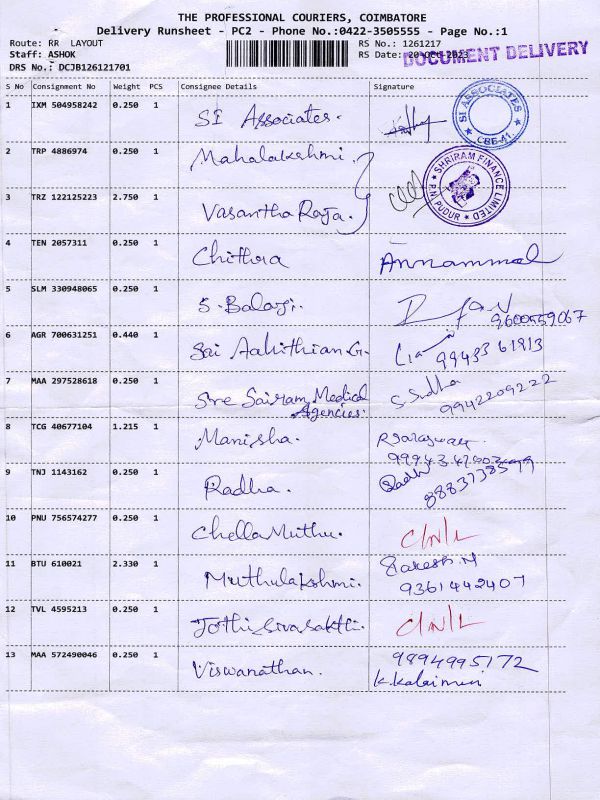 THE PROFESSIONAL COURIERS, COIMBATORE
Delivery Runsheet - PC2 - Phone No.:0422-3505555 - Page No.:1
Route: RR LAYOUT
RS No.: 1261217
Staff: ASHOK
RS Date: 20-Oct-2023
DOCUMENT DELIVERY
DRS No.: DCJB126121701
S No Consignment No Weight PCS Consignee Details Signature
1 IXM 504958242 0.250 1 SI Associates.
SI ASSOCIATES
CBE-41.
2 TRP 4886974 0.250 1 Mahalakshmi.
SHRIRAM FINANCE LIMITED
P.N.PUDUR
3 TRZ 122125223 2.750 1 Vasantha Raja.
4 TEN 2057311 0.250 1 Chithra Annammal
5 SLM 330948065 0.250 1 S. Balaji.
9600559067
6 AGR 700631251 0.440 1 Sai Aahithian G.
99433 61813
7 MAA 297528618 0.250 1 Sre Sairam Medical Agencies. S. Sudha
9942209222
8 TCG 40677104 1.215 1 Manisha.
9 TNJ 1143162 0.250 1 Radha. Radh
10 PNU 756574277 0.250 1 Chella Muthu. C/N/L
11 BTU 610021 2.330 1 Muthulakshmi. Rakesh.M
9361442407
12 TVL 4595213 0.250 1 Jothi Sivasakthi. C/N/L
13 MAA 572490046 0.250 1 Viswanathan. 9894995172
K. Kalaimani